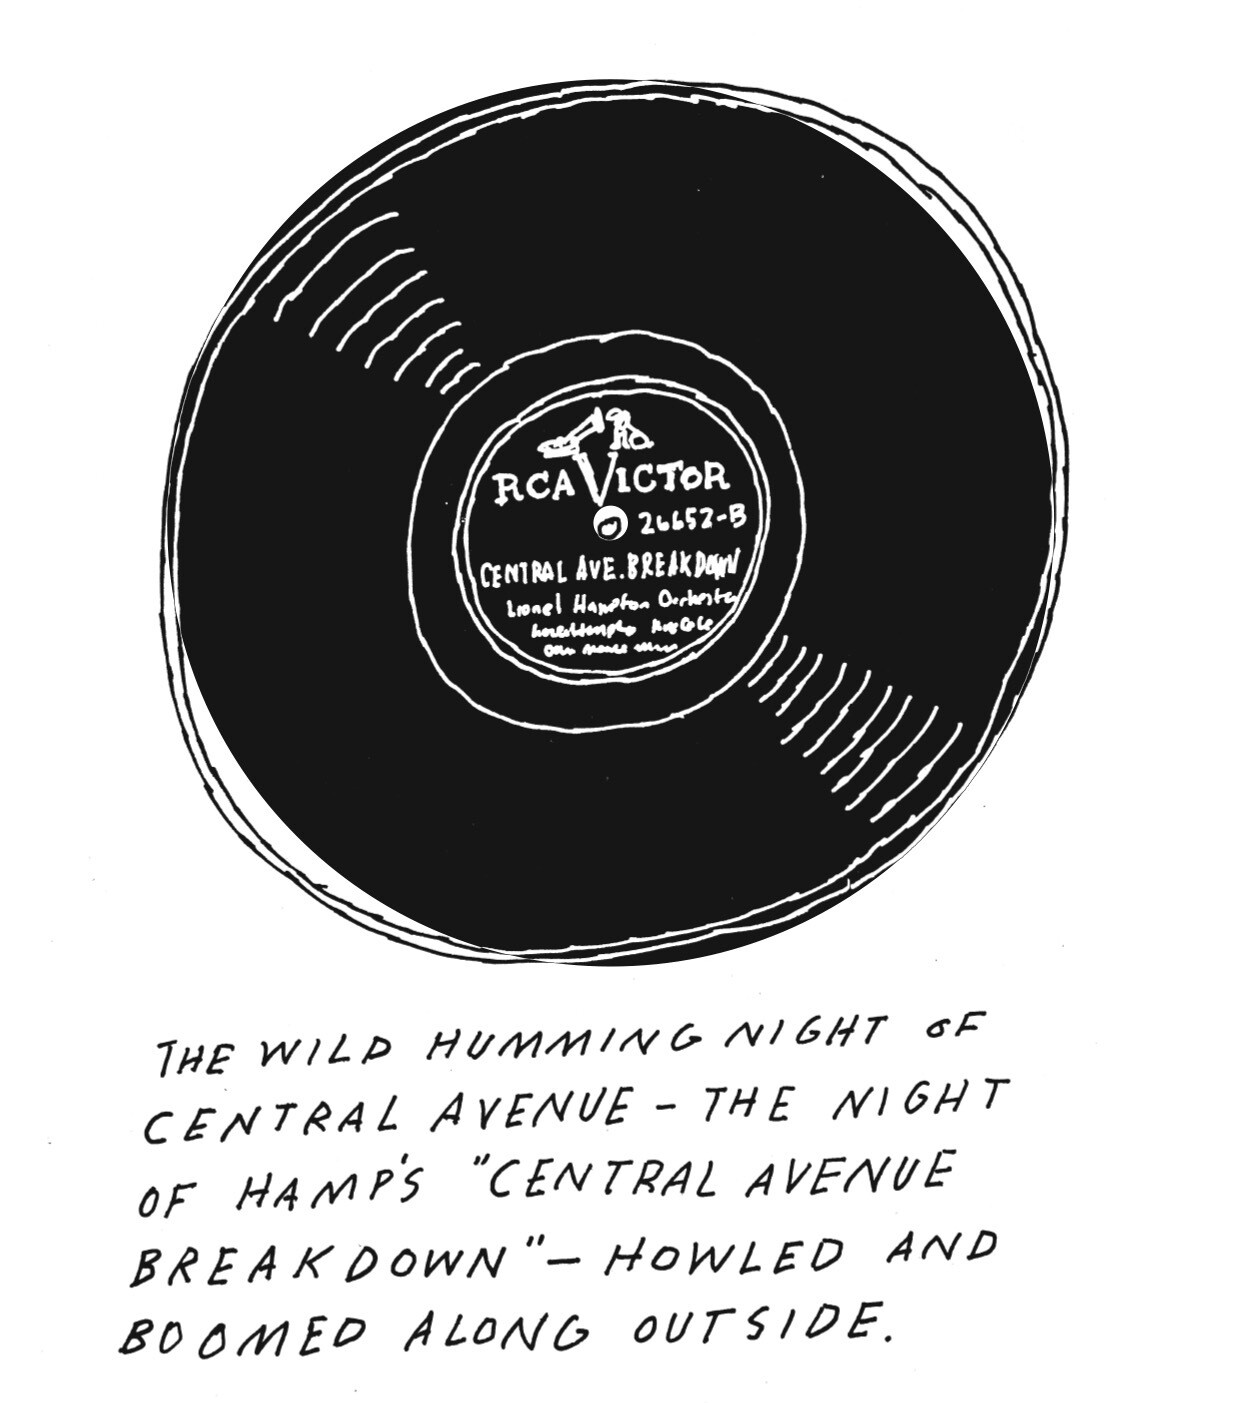 RCA VICTOR
26652-B
CENTRAL AVE. BREAKDOWN
Lionel Hampton Orchestra
THE WILD HUMMING NIGHT OF
CENTRAL AVENUE – THE NIGHT
OF HAMP'S "CENTRAL AVENUE
BREAKDOWN" – HOWLED AND
BOOMED ALONG OUTSIDE.